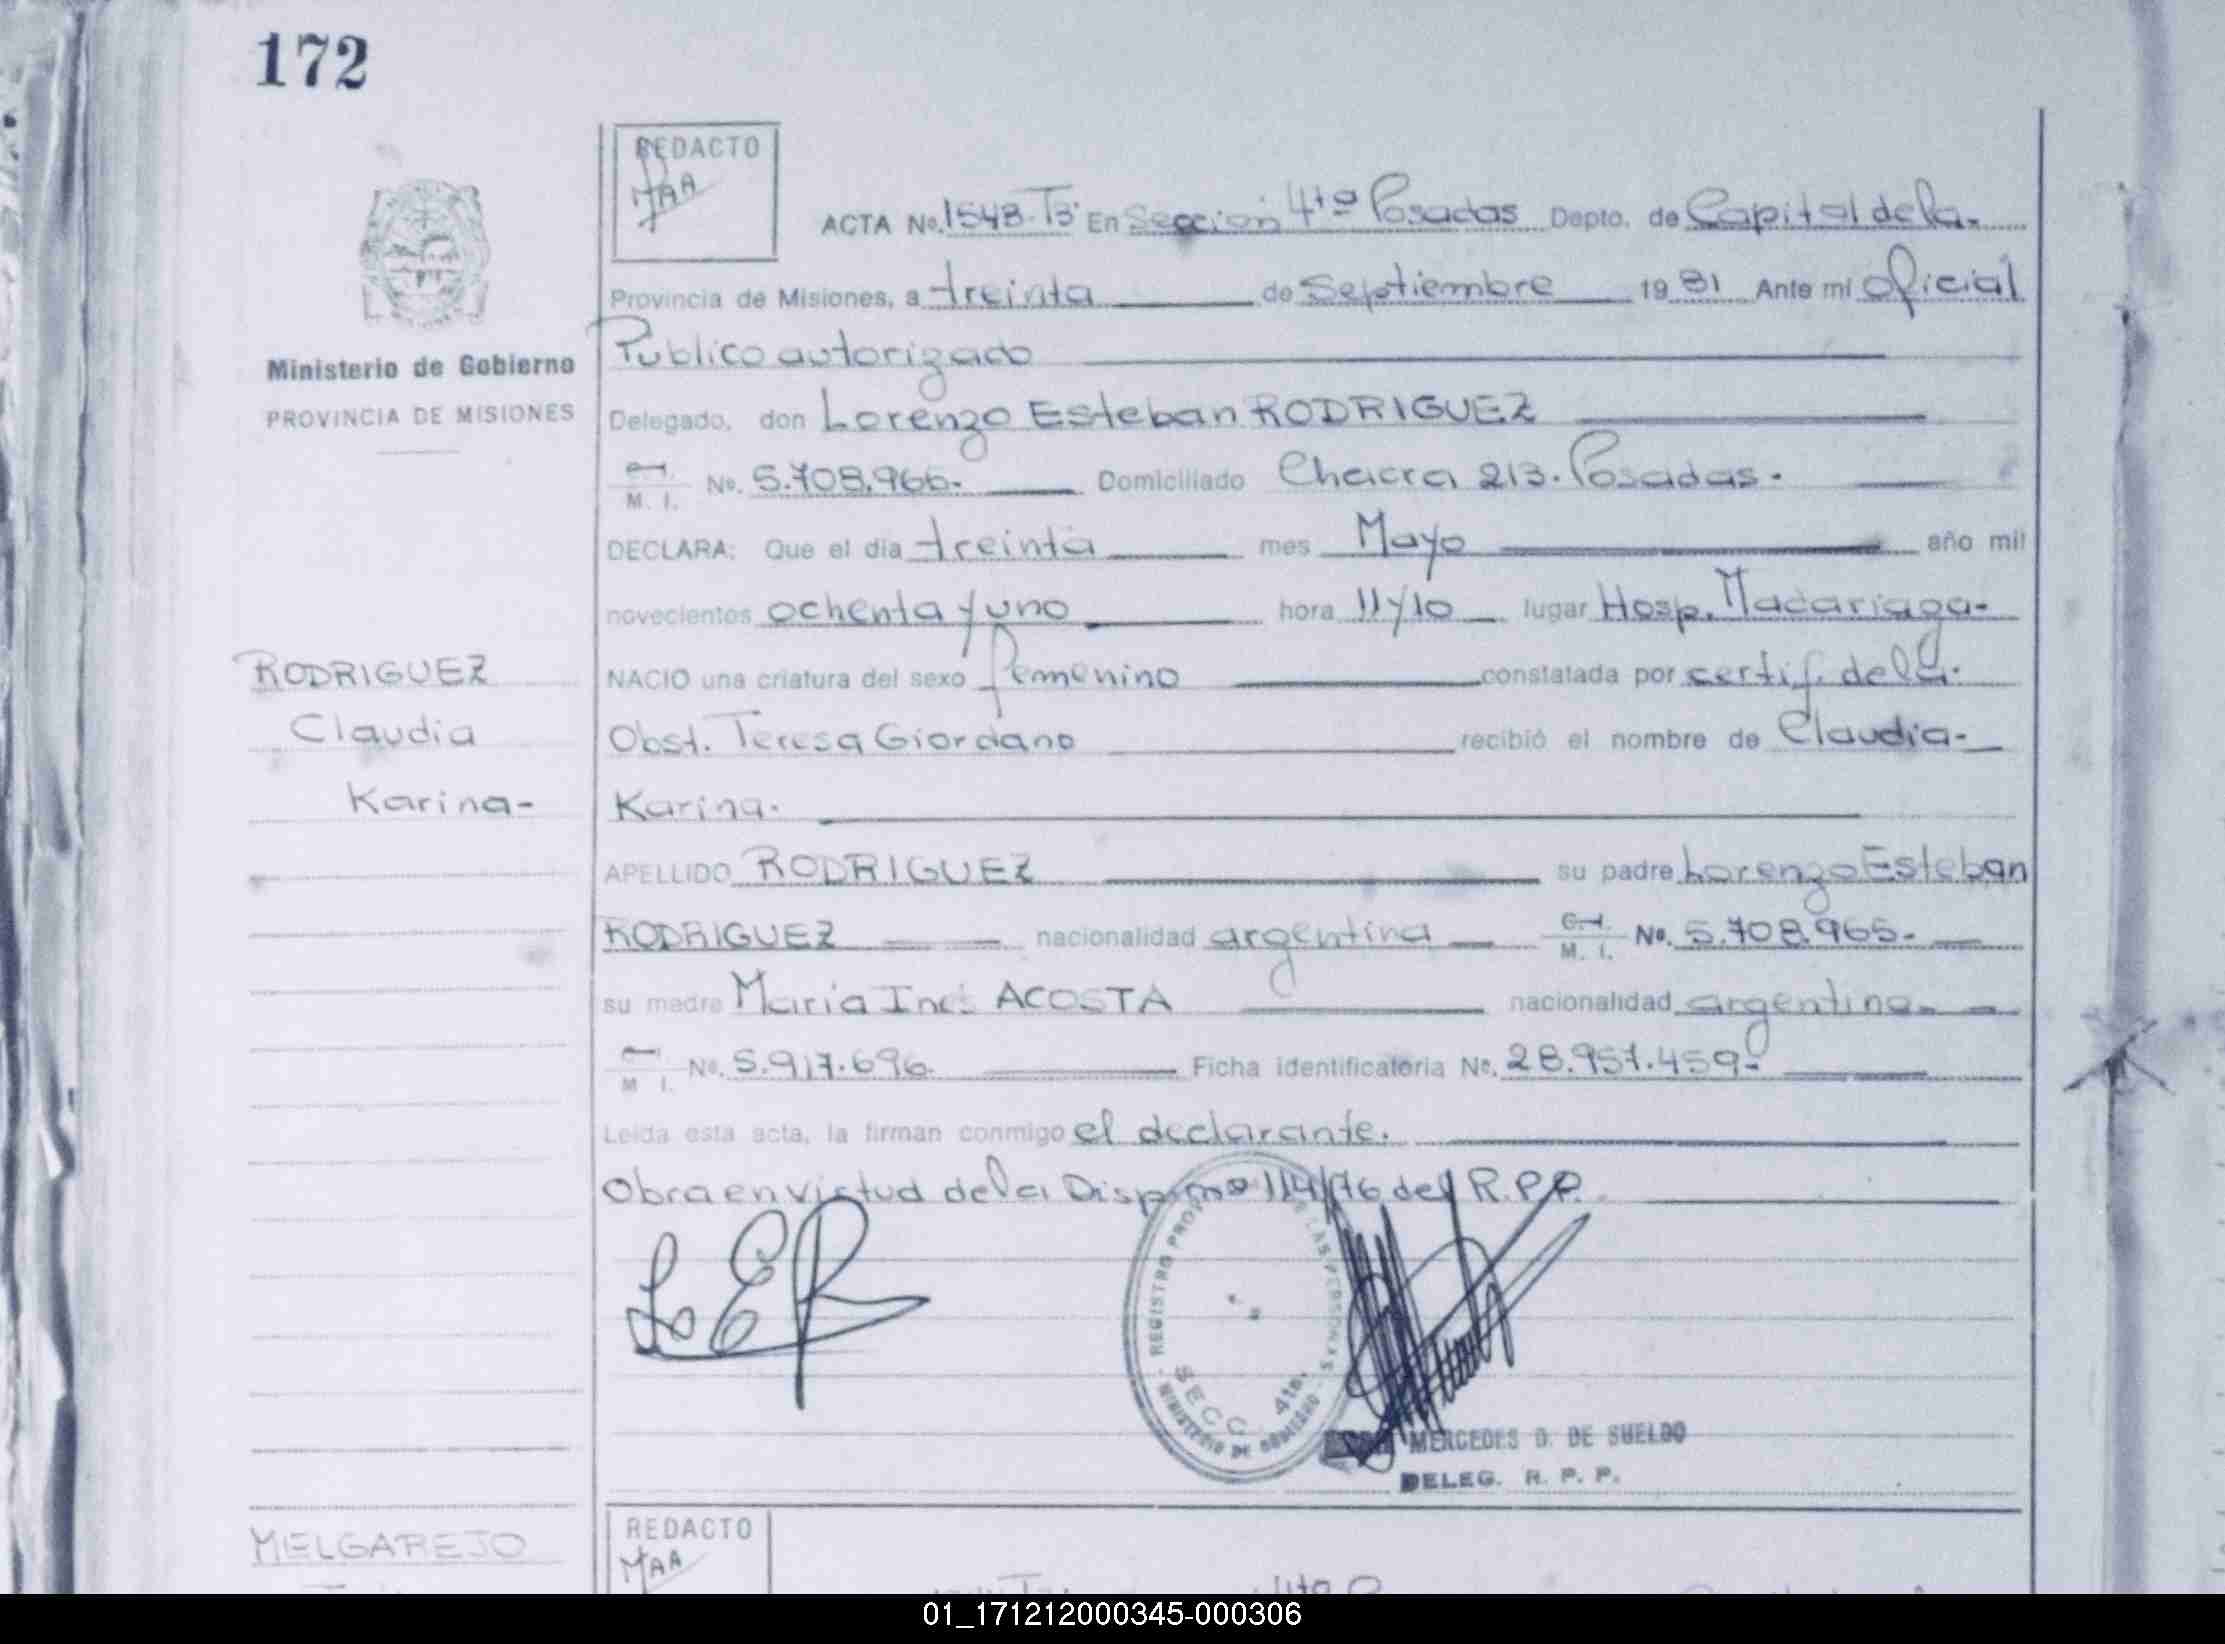 172
REDACTO
MAA
ACTA No. 1548-Tº3º En Seccion 4ta Posadas Depto. de Capital de la-
Provincia de Misiones, a treinta de Septiembre 1981 Ante mi Oficial
Publico autorizado
Ministerio de Gobierno
PROVINCIA DE MISIONES
Delegado, don Lorenzo Esteban RODRIGUEZ
M. I. No. 5.708.965- Domiciliado Chacra 213. Posadas-
DECLARA: Que el día treinta mes Mayo año mil
novecientos ochenta y uno hora 11y10 lugar Hosp. Madariaga-
RODRIGUEZ
Claudia
Karina-
NACIO una criatura del sexo femenino constatada por certif. de la-
Obst. Teresa Giordano recibió el nombre de Claudia-
Karina-
APELLIDO RODRIGUEZ su padre Lorenzo Esteban
RODRIGUEZ nacionalidad argentina C.I. M. I. No. 5.708.965-
su madre Maria Ines ACOSTA nacionalidad argentina-
M I. No. 5.917.696 Ficha identificatoria No. 28.957.459-
Leída esta acta, la firman conmigo el declarante.
Obra en virtud de la Disp. nº 114/76 del R.P.P.
REGISTRO PROV DE LAS PERSONAS
SECC. 4ta.
MINISTERIO DE GOBIERNO
MERCEDES D. DE SUELDO
DELEG. R. P. P.
MELGAREJO
REDACTO
MAA
01_171212000345-000306